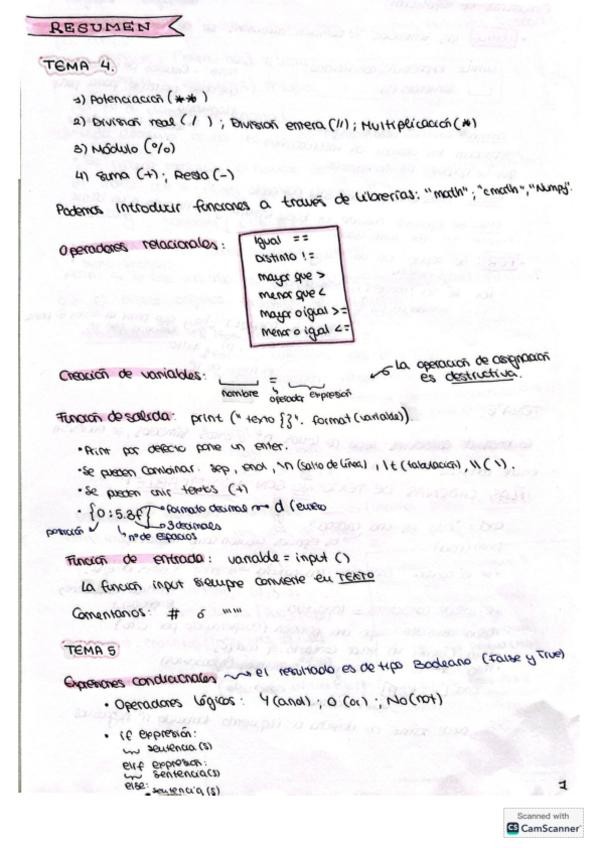 RESUMEN
TEMA 4.
1) Potenciación (**)
2) División real (/) ; División entera (//) ; Multiplicación (*)
3) Módulo (%)
4) Suma (+) ; Resta (-)
Podemos introducir funciones a través de librerías: "math" ; "cmath", "Numpy".
Operadores relacionales:
Igual ==
Distinto !=
mayor que >
menor que <
mayor o igual >=
menor o igual <=
Creación de variables: =
nombre operador expresión
La operación de asignación
es destructiva.
Función de salida: print ("texto {}". format (variable)).
• Print por defecto pone un enter.
• Se pueden combinar. sep, end, \n (salto de línea), \t (tabulación), \\ (\).
• Se pueden unir textos (+)
• {0:5.3f formato decimal d (entero
3 decimales
posición nº de espacios
Función de entrada: variable = input ()
La función input siempre convierte en TEXTO
Comentarios: # ó """"
TEMA 5
Expresiones condicionales el resultado es de tipo Booleano (False y True)
• Operadores lógicos: Y (and) ; O (or) ; No (not)
• if expresión:
sentencia(s)
elif expresion:
sentencia(s)
else:
sentencia(s)
1
Scanned with
CS CamScanner